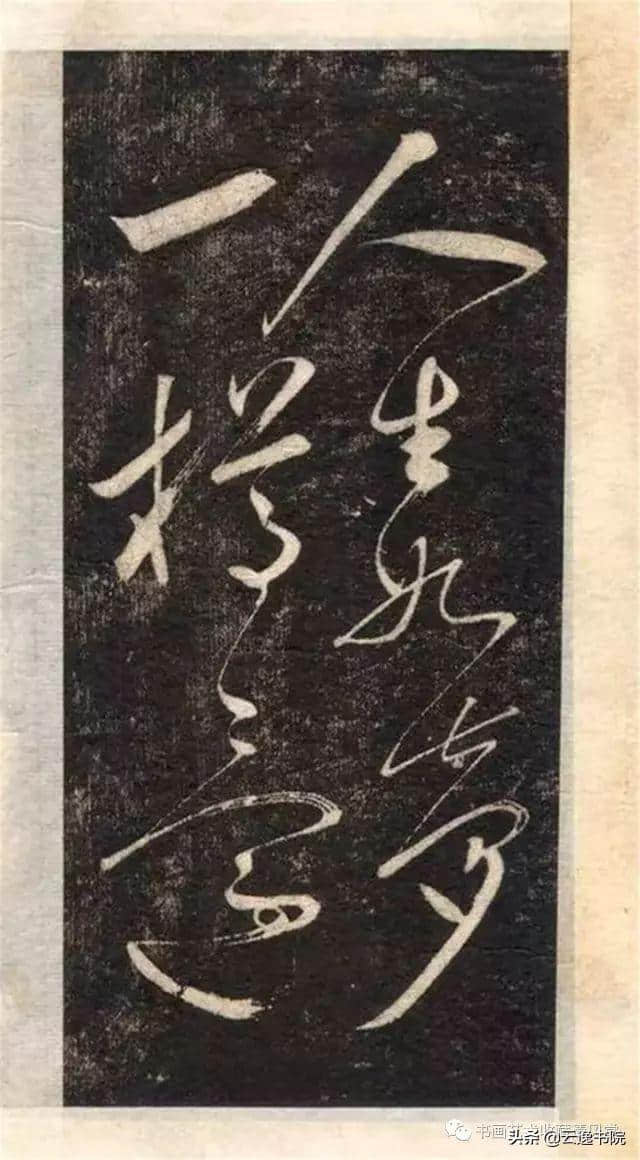 人生如夢
一樽還
头条 @云逸书院